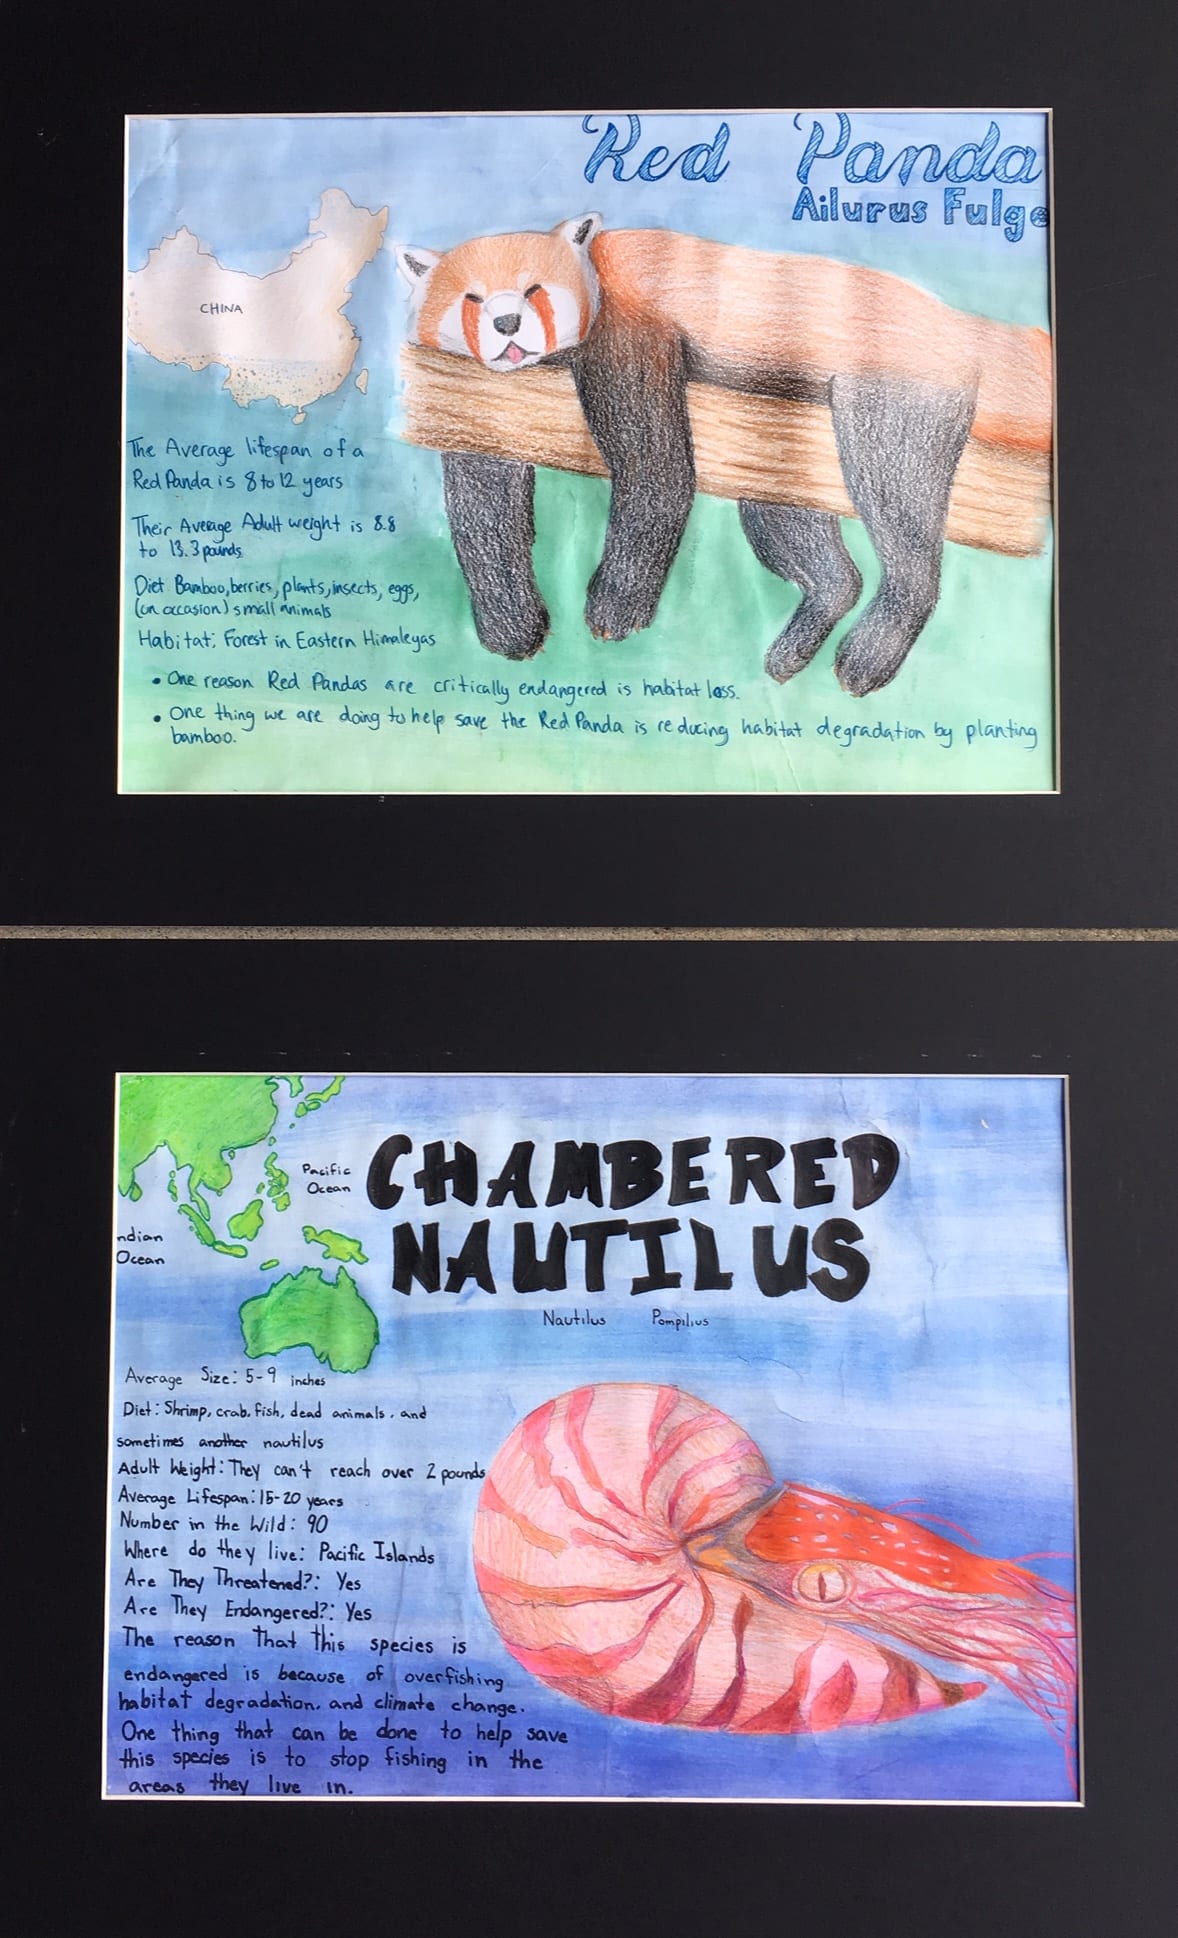 Red Panda
Ailurus Fulge
CHINA
The Average lifespan of a
Red Panda is 8 to 12 years
Their Average Adult weight is 8.8
to 13.3 pounds
Diet Bamboo, berries, plants, insects, eggs,
(on occasion) small animals
Habitat: Forest in Eastern Himaleyas
• One reason Red Pandas are critically endangered is habitat loss.
• One thing we are doing to help save the Red Panda is reducing habitat degradation by planting
bamboo.
CHAMBERED
NAUTILUS
Nautilus Pompilius
Pacific
Ocean
ndian
Ocean
Average Size: 5-9 inches
Diet: Shrimp, crab, fish, dead animals, and
sometimes another nautilus
Adult Weight: They can't reach over 2 pounds
Average Lifespan: 15-20 years
Number in the Wild: 90
Where do they live: Pacific Islands
Are They Threatened?: Yes
Are They Endangered?: Yes
The reason that this species is
endangered is because of overfishing
habitat degradation, and climate change.
One thing that can be done to help save
this species is to stop fishing in the
areas they live in.